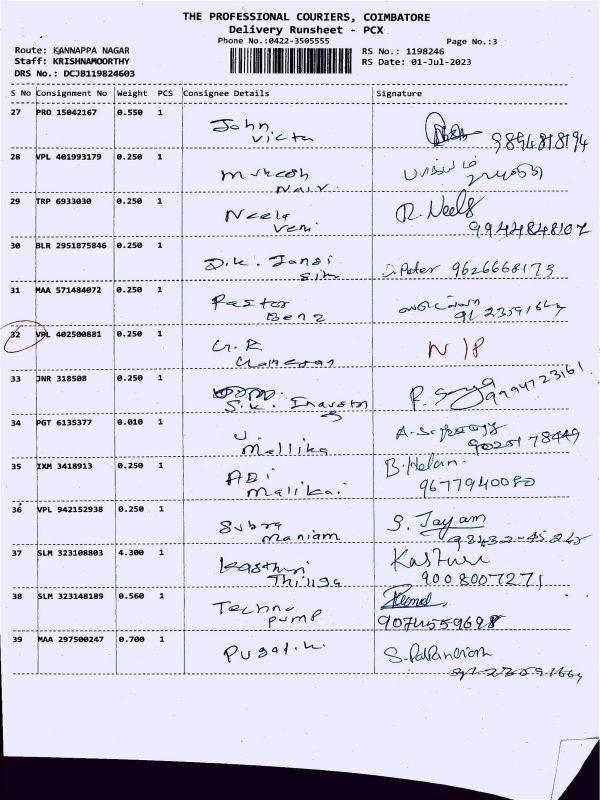 THE PROFESSIONAL COURIERS, COIMBATORE
Delivery Runsheet - PCX
Phone No.:0422-3505555
Page No.:3
Route: KANNAPPA NAGAR
RS No.: 1198246
Staff: KRISHNAMOORTHY
RS Date: 01-Jul-2023
DRS No.: DCJB119824603
S No Consignment No Weight PCS Consignee Details Signature
27 PRO 15042167 0.550 1
John
Victa
9894818194
28 VPL 401993179 0.250 1
Mukesh
Nair
29 TRP 6933030 0.250 1
Neela
Veni
R. Neela
9944848107
30 BLR 2951875846 0.250 1
D.K. Jansi
D. Peter 9626668173
31 MAA 571484072 0.250 1
Pastor
Benz
91 23591664
32 VPL 402500881 0.250 1
G.R
N/P
33 JNR 318508 0.250 1
S.K.
9994723161
34 PGT 6135377 0.010 1
J.
Mallika
9025178449
35 IXM 3418913 0.250 1
ABi
Malikai
B. Helan.
9677940090
36 VPL 942152938 0.250 1
Subra
maniam
S. Jayam
37 SLM 323108803 4.300 1
Kasthuri
Thilaga
Kasturi
9008007271
38 SLM 323148189 0.560 1
Techno
pump
9074559698
39 MAA 297500247 0.700 1
91 23591664